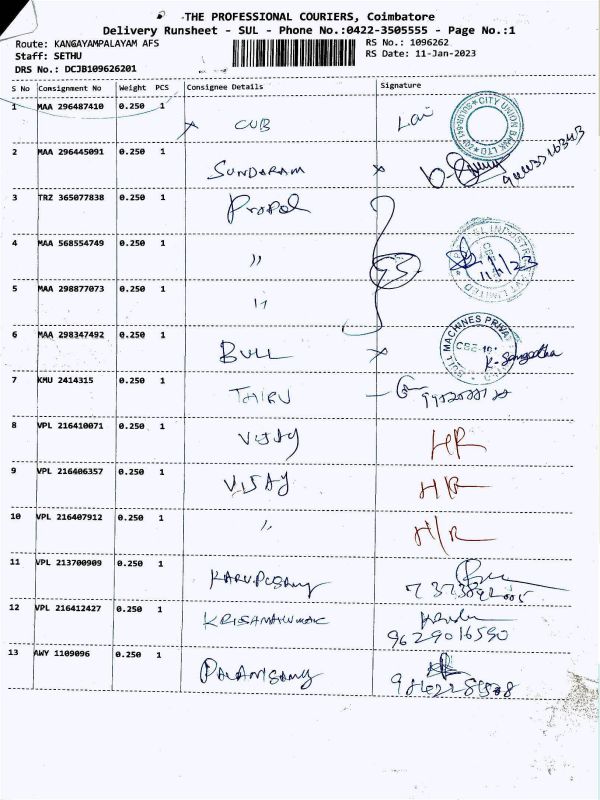 THE PROFESSIONAL COURIERS, Coimbatore
Delivery Runsheet - SUL - Phone No.:0422-3505555 - Page No.:1
Route: KANGAYAMPALAYAM AFS
RS No.: 1096262
Staff: SETHU
RS Date: 11-Jan-2023
DRS No.: DCJB109626201
S No Consignment No Weight PCS Consignee Details Signature
1 MAA 296487410 0.250 1 CUB CITY UNION BANK LTD
2 MAA 296445091 0.250 1 SUNDARAM
3 TRZ 365077838 0.250 1 Propel
4 MAA 568554749 0.250 1 " 11/1/23
5 MAA 298877073 0.250 1 "
6 MAA 298347492 0.250 1 BULL BULL MACHINES PRIVATE R-Sangeetha
7 KMU 2414315 0.250 1 THIRU
8 VPL 216410071 0.250 1 VIJAY HR
9 VPL 216406357 0.250 1 VIJAY HR
10 VPL 216407912 0.250 1 " H/R
11 VPL 213700909 0.250 1
12 VPL 216412427 0.250 1 9629016590
13 AWY 1109096 0.250 1 PALANISAMY